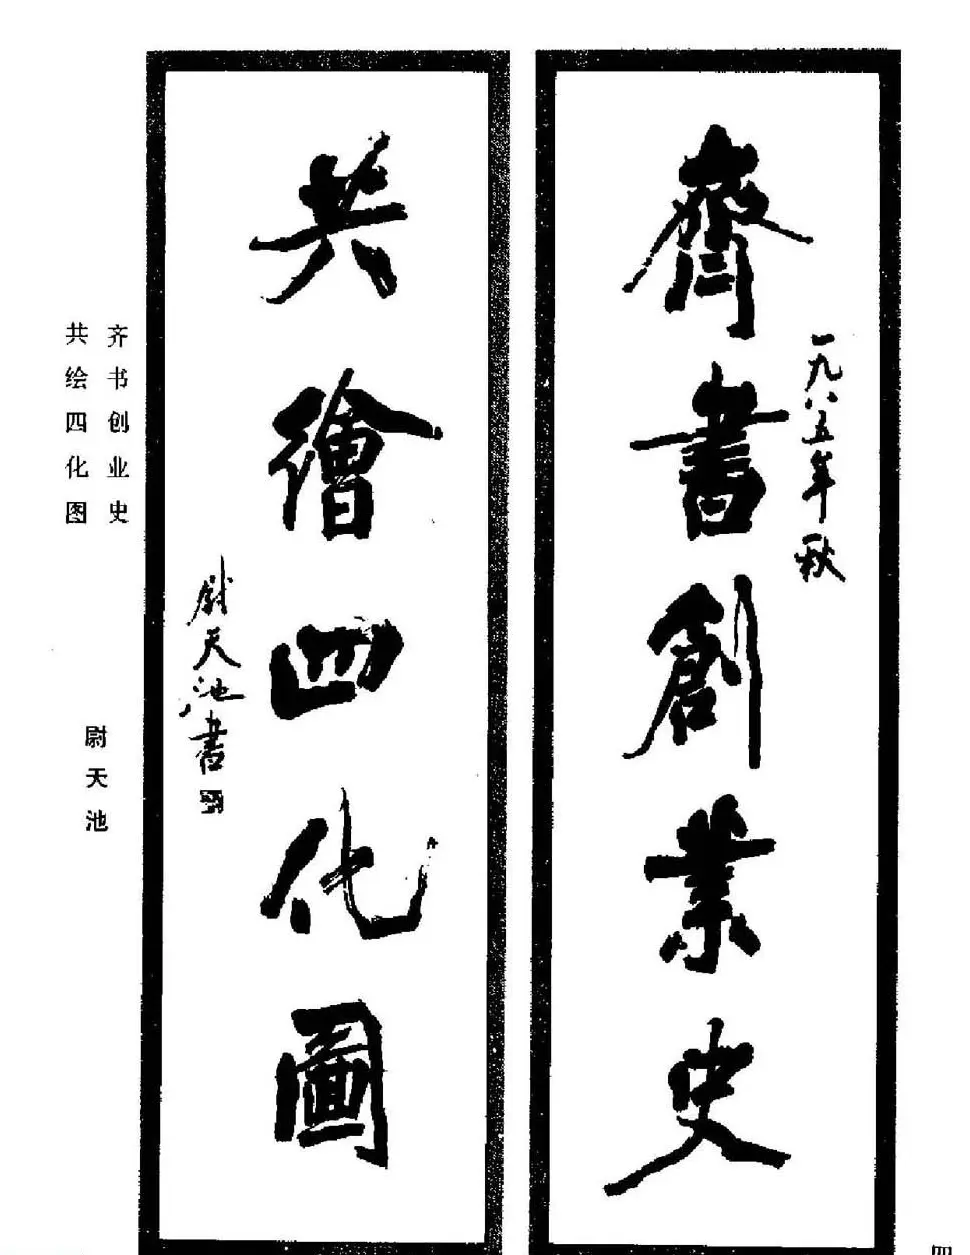 齊書創業史
一九八五年秋
共繪四化圖
尉天池書
齐书创业史
共绘四化图
尉天池